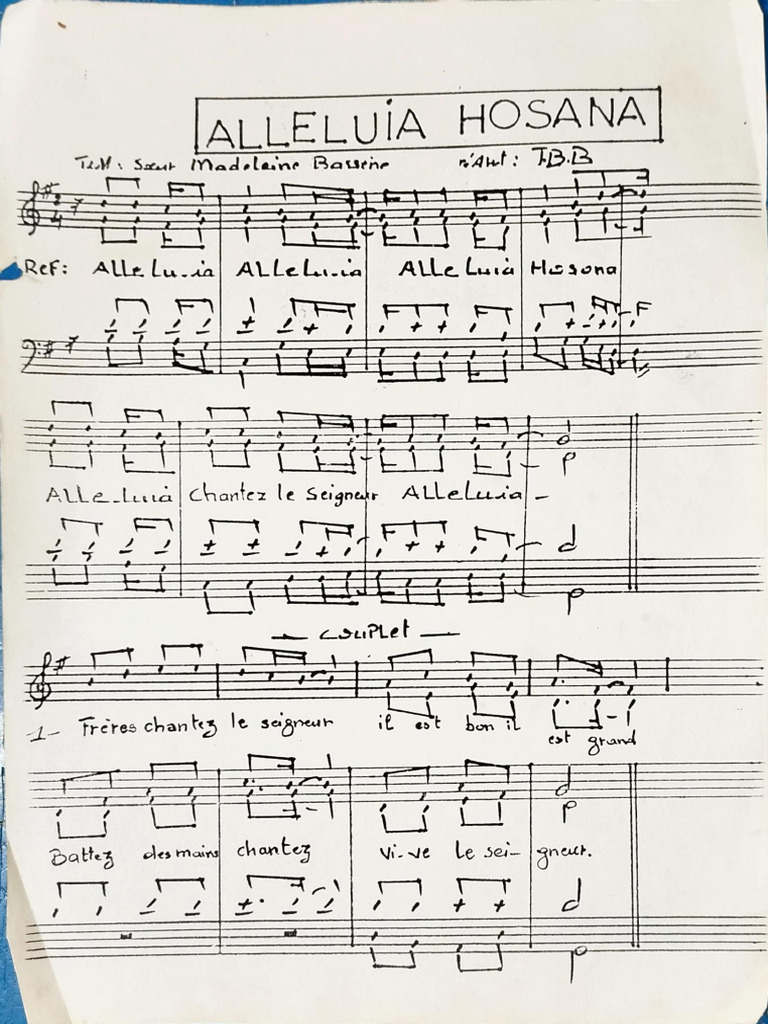 ALLELUIA HOSANA
T&M: Sœur Madeleine Bassene H'Art: J.B.B
Ref: Alle Lu-ia ALLe Lu-ia ALLe Luia Hosana
ALLe-Luia chantez le seigneur ALLeluia -
— COUPLET —
-1- Frères chantez le seigneur il est bon il est grand
Battez des mains chantez Vi-ve le sei- gneur.